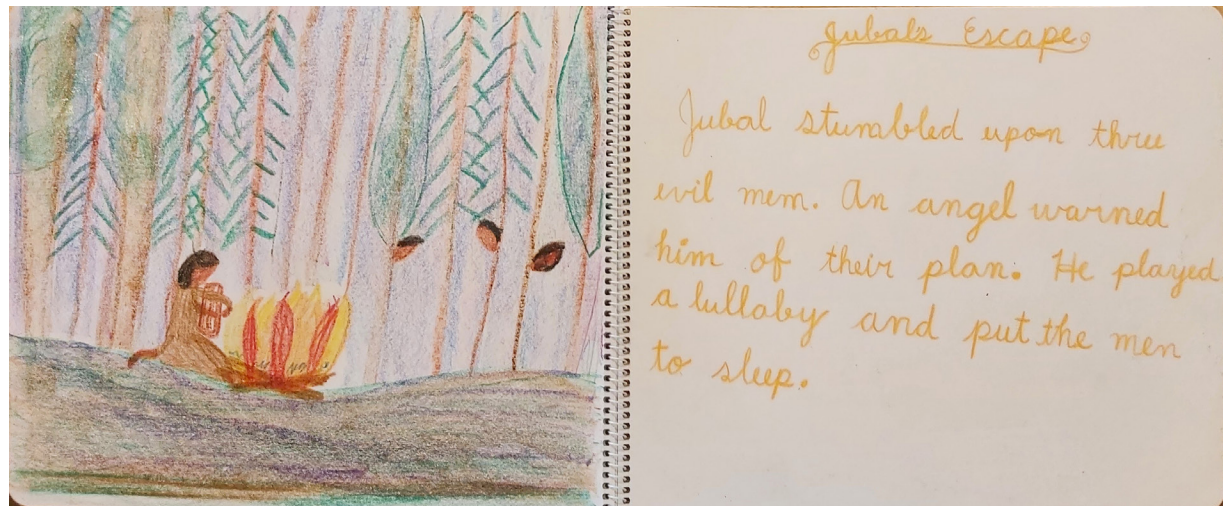 Jubal's Escape
Jubal stumbled upon three
evil men. An angel warned
him of their plan. He played
a lullaby and put the men
to sleep.